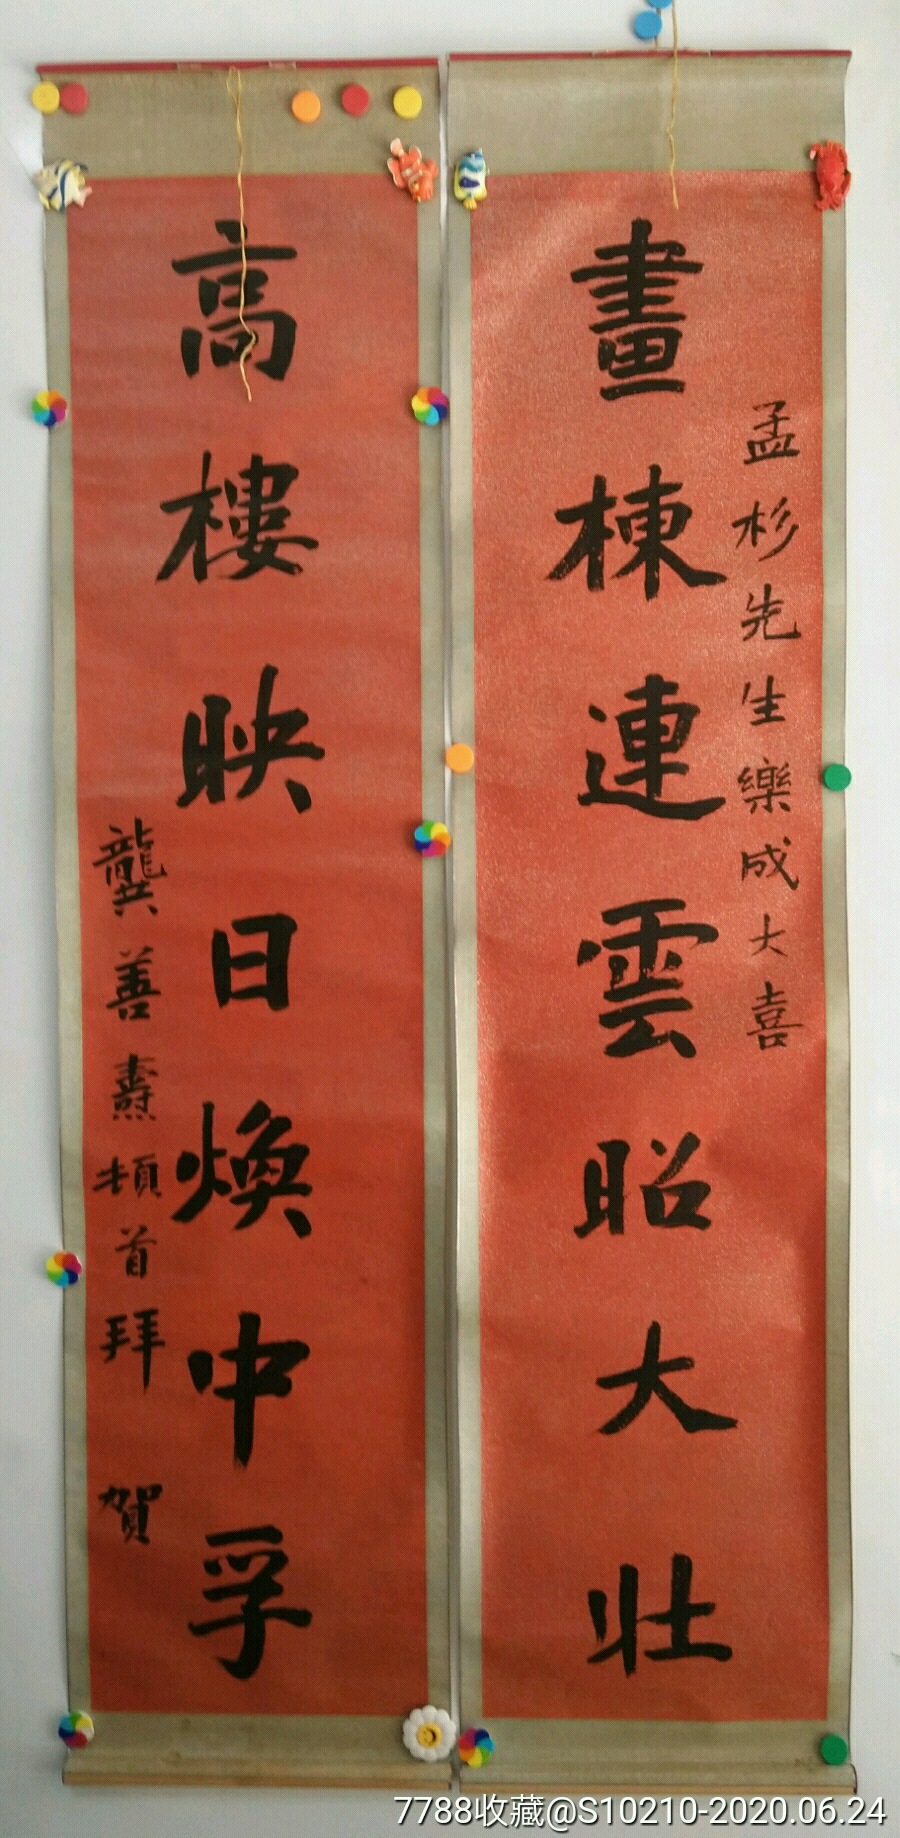 孟杉先生樂成大喜
畫棟連雲昭大壯
高樓映日煥中孚
龔善燾頓首拜賀
7788收藏@S10210-2020.06.24